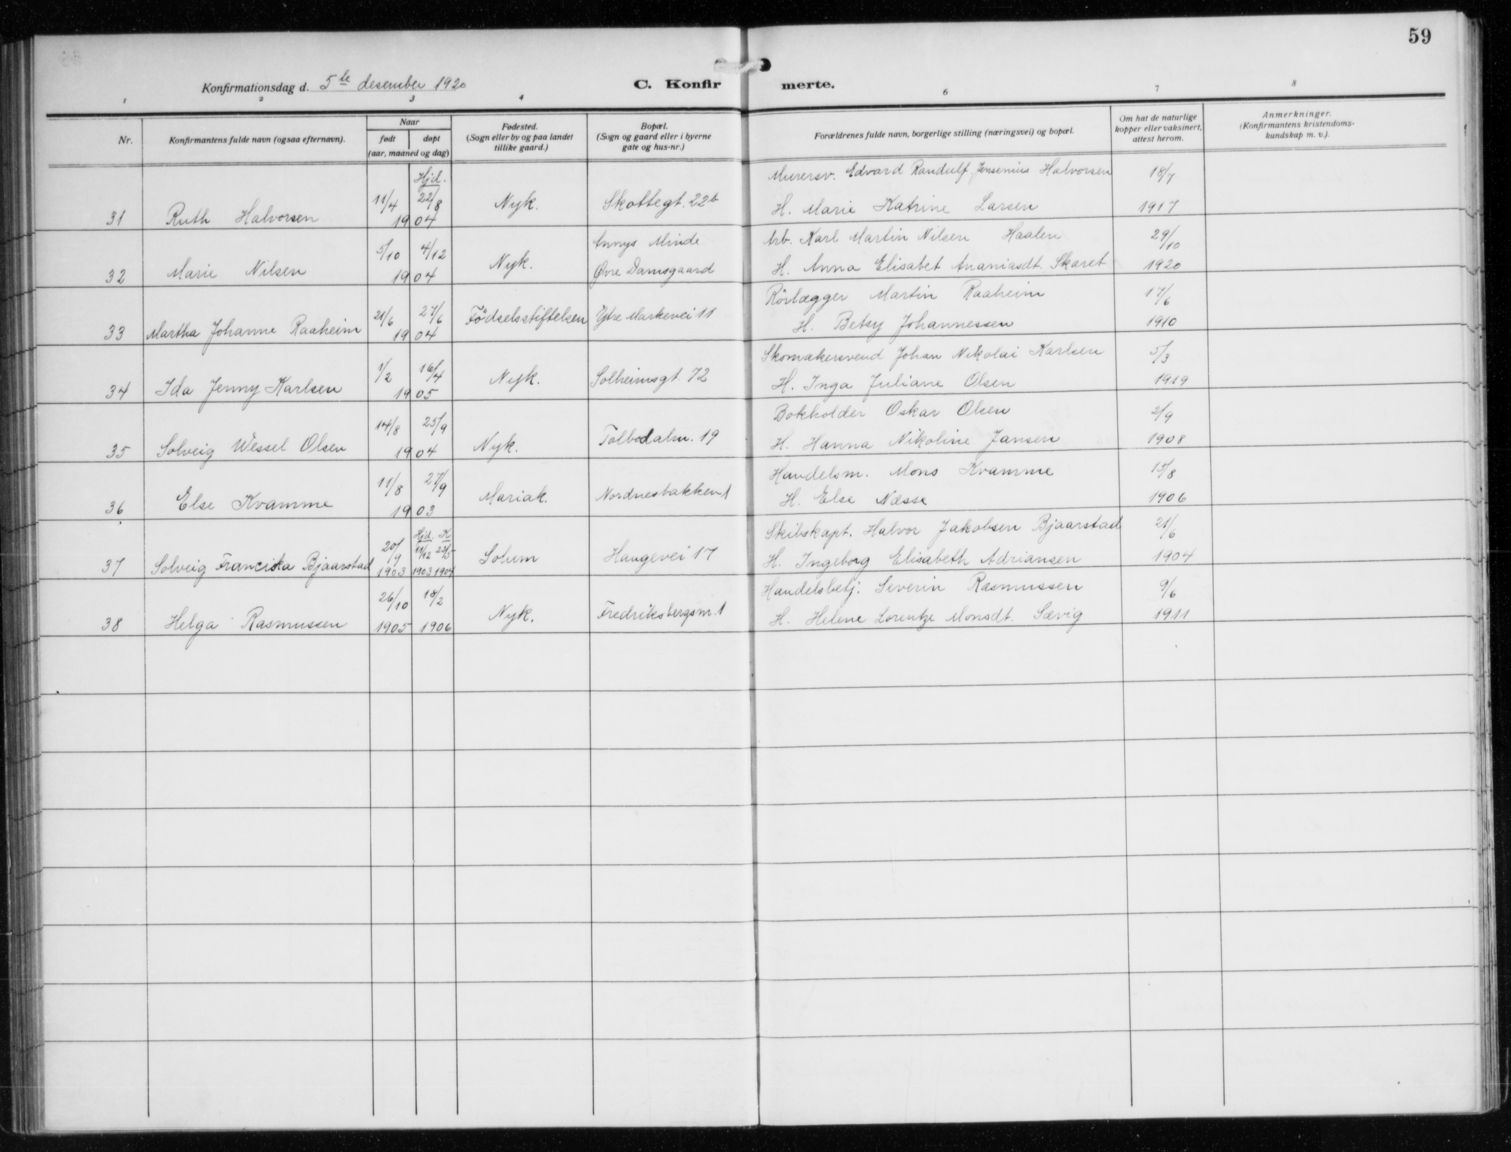 59
Konfirmationsdag d. 5te desember 1920
C. Konfirmerte.
1 2 3 4 6 7 8
Nr. Konfirmantens fulde navn (ogsaa efternavn). Naar født døpt (aar, maaned og dag) Fødested. (Sogn eller by og paa landet tillike gaard.) Bopæl. (Sogn og gaard eller i byerne gate og hus-nr.) Forældrenes fulde navn, borgerlige stilling (næringsvei) og bopæl. Om hat de naturlige kopper eller vaksinert, attest herom. Anmerkninger. (Konfirmantens kristendoms-kundskap m. v.).
Hjd. Murersv. Edvard Randulf Jensenius Halvorsen 18/7
31 Ruth Halvorsen 11/4 22/8 1904 Nyk. Skottegt. 22b H. Marie Katrine Larsen 1917
5/10 4/12 Minde Arb. Karl Martin Nilsen Haalen 29/10
32 Marie Nilsen 1904 Nyk. Øvre Damsgaard H. Anna Elisabet Ananiasdt. Skaret 1920
Rørlægger Martin Raaheim 17/6
33 Martha Johanne Raaheim 21/6 27/6 1904 Fødselsstiftelsen Ytre Markevei 11 H. Betsy Johannessen 1910
1/2 16/4 Skomakersvend Johan Nikolai Karlsen 5/3
34 Ida Jenny Karlsen 1905 Nyk. Solheimsgt. 72 H. Inga Juliane Olsen 1919
14/8 25/9 Bokholder Oskar Olsen 2/9
35 Solveig Wessel Olsen 1904 Nyk. Tolbodalm. 19 H. Hanna Nikoline Jansen 1908
11/8 27/9 Handelsm. Mons Kvamme 15/8
36 Else Kvamme 1903 Mariak. Nordnesbakken 1 H. Else Næsse 1906
Hjd. K Skibskapt. Halvor Jakobsen Bjaarstad 21/6
37 Solveig Franciska Bjaarstad 20/9 1903 11/12 1903 22/5 1904 Solum Haugevei 17 H. Ingeborg Elisabeth Adriansen 1904
26/10 18/2 Handelsbetj. Severin Rasmussen 9/6
38 Helga Rasmussen 1905 1906 Nyk. Fredriksbergsm. 1 H. Helene Lorentze Monsdt. Sævig 1911